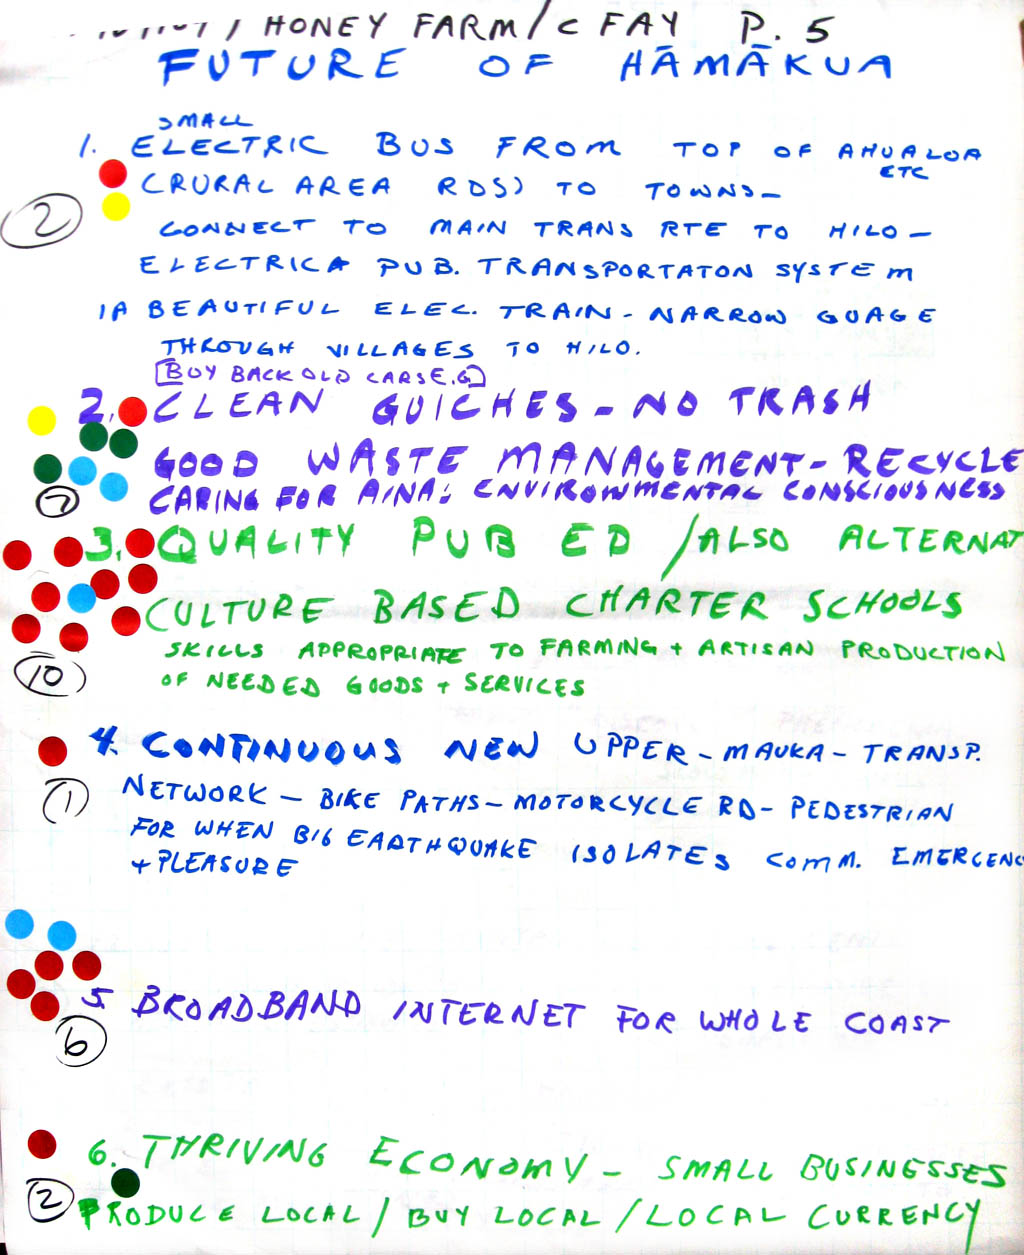 / HONEY FARM / C FAY P. 5
FUTURE OF HĀMĀKUA
SMALL
1. ELECTRIC BUS FROM TOP OF AHUALOA
ETC
(RURAL AREA RDS) TO TOWNS-
2
CONNECT TO MAIN TRANS RTE TO HILO -
ELECTRICA PUB. TRANSPORTATON SYSTEM
1A BEAUTIFUL ELEC. TRAIN - NARROW GUAGE
THROUGH VILLAGES TO HILO.
[BUY BACK OLD CARS E.G]
2. CLEAN GULCHES - NO TRASH
GOOD WASTE MANAGEMENT - RECYCLE
7 CARING FOR AINA: ENVIRONMENTAL CONSCIOUSNESS
3. QUALITY PUB ED / ALSO ALTERNAT
CULTURE BASED CHARTER SCHOOLS
SKILLS APPROPRIATE TO FARMING + ARTISAN PRODUCTION
10 OF NEEDED GOODS + SERVICES
4. CONTINUOUS NEW UPPER - MAUKA - TRANSP.
1 NETWORK - BIKE PATHS - MOTORCYCLE RD - PEDESTRIAN
FOR WHEN BIG EARTHQUAKE ISOLATES COMM. EMERGENC
+ PLEASURE
5. BROADBAND INTERNET FOR WHOLE COAST
6
6. THRIVING ECONOMY - SMALL BUSINESSES
2 PRODUCE LOCAL / BUY LOCAL / LOCAL CURRENCY